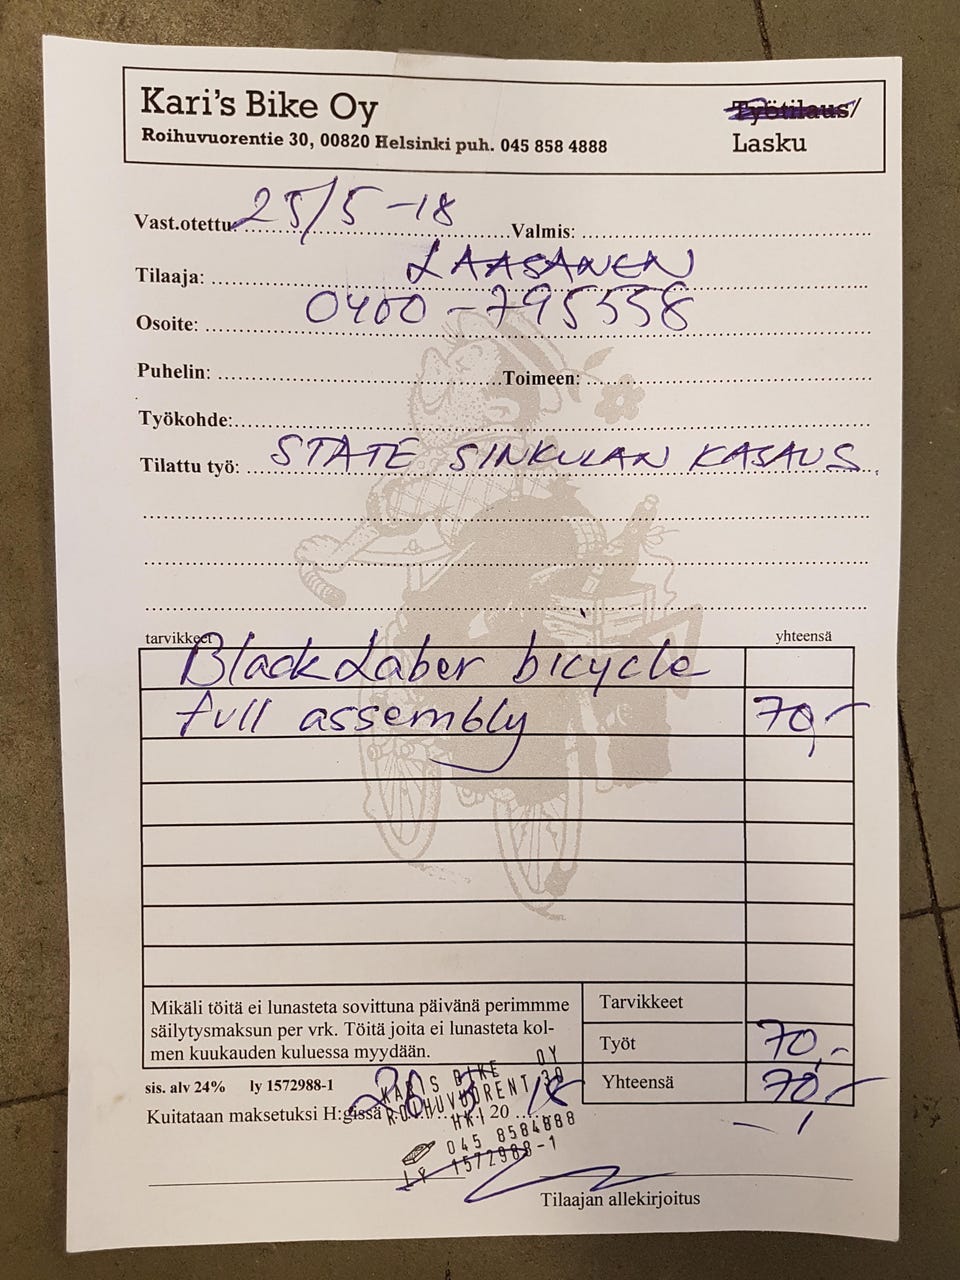 Kari's Bike Oy
Roihuvuorentie 30, 00820 Helsinki puh. 045 858 4888
Työtilaus/
Lasku
Vast.otettu: 25/5-18 Valmis:
Tilaaja: LAASANEN
Osoite: 0400-795558
Puhelin: Toimeen:
Työkohde:
Tilattu työ: STATE SINKULAN KASAUS
tarvikkeet yhteensä
Black Laber bicycle
full assembly 70,-
Mikäli töitä ei lunasteta sovittuna päivänä perimmme
säilytysmaksun per vrk. Töitä joita ei lunasteta kol-
men kuukauden kuluessa myydään.
Tarvikkeet
Työt 70,-
Yhteensä 70,-
sis. alv 24% ly 1572988-1
Kuitataan maksetuksi H:gissä 20 18
KARIS BIKE OY
ROIHUVUORENT 30
HKI
045 8584888
LY 1572988-1
Tilaajan allekirjoitus